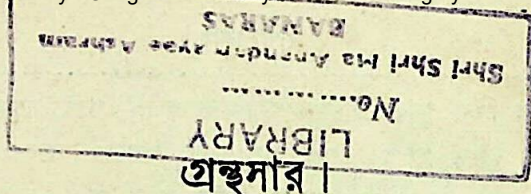 LIBRARY
No..............
Shri Shri Ma Anandamayee Ashram
BANARAS
গ্রন্থসার।